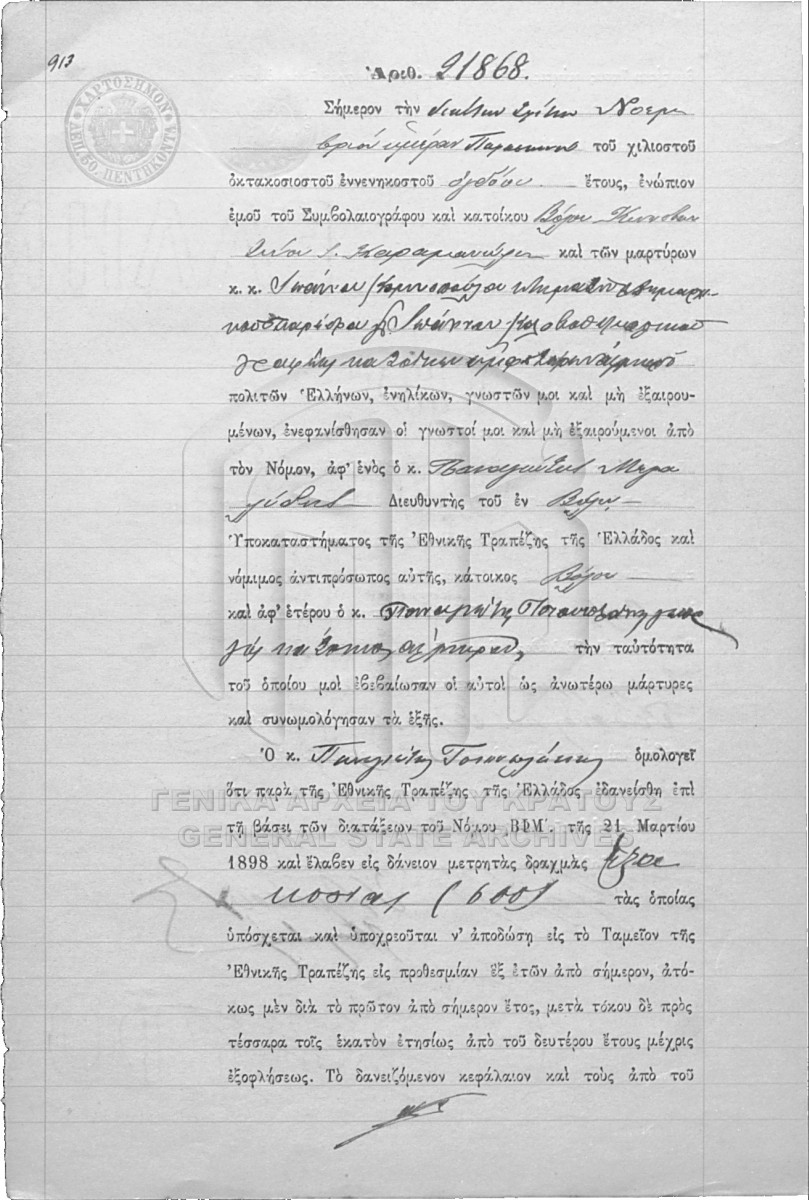 913
Ἀριθ. 21868.
ΧΑΡΤΟΣΗΜΟΝ
ΛΕΠ. 50. ΠΕΝΤΗΚΟΝΤΑ
Σήμερον τὴν δεκάτην τρίτην Νοεμ
βρίου ἡμέραν Παρασκευὴν τοῦ χιλιοστοῦ
ὀκτακοσιοστοῦ ἐννενηκοστοῦ ὀγδόου ἔτους, ἐνώπιον
ἐμοῦ τοῦ Συμβολαιογράφου καὶ κατοίκου Βόλου Κωνσταν
τίνου Καραμανώλη καὶ τῶν μαρτύρων
κ. κ. Ἰωάννου
Ἰωάννου
πολιτῶν Ἑλλήνων, ἐνηλίκων, γνωστῶν μοι καὶ μὴ ἐξαιρου-
μένων, ἐνεφανίσθησαν οἱ γνωστοί μοι καὶ μὴ ἐξαιρούμενοι ἀπὸ
τὸν Νόμον, ἀφ' ἑνὸς ὁ κ. Παναγιώτης Μεγα
Διευθυντὴς τοῦ ἐν Βόλῳ
Ὑποκαταστήματος τῆς Ἐθνικῆς Τραπέζης τῆς Ἑλλάδος καὶ
νόμιμος ἀντιπρόσωπος αὐτῆς, κάτοικος Βόλου
καὶ ἀφ' ἑτέρου ὁ κ. Παναγιώτης γεωρ
γὸς κάτοικος τὴν ταὐτότητα
τοῦ ὁποίου μοὶ ἐβεβαίωσαν οἱ αὐτοὶ ὡς ἀνωτέρω μάρτυρες
καὶ συνωμολόγησαν τὰ ἑξῆς.
Ὁ κ. Παναγιώτης ὁμολογεῖ
ὅτι παρὰ τῆς Ἐθνικῆς Τραπέζης τῆς Ἑλλάδος ἐδανείσθη ἐπὶ
ΓΕΝΙΚΑ ΑΡΧΕΙΑ ΤΟΥ ΚΡΑΤΟΥΣ
τῇ βάσει τῶν διατάξεων τοῦ Νόμου ͵ΒΦΜ΄. τῆς 21 Μαρτίου
GENERAL STATE ARCHIVES
1898 καὶ ἔλαβεν εἰς δάνειον μετρητὰς δραχμὰς ἑξα
κοσίας (600) τὰς ὁποίας
ὑπόσχεται καὶ ὑποχρεοῦται ν' ἀποδώσῃ εἰς τὸ Ταμεῖον τῆς
Ἐθνικῆς Τραπέζης εἰς προθεσμίαν ἓξ ἐτῶν ἀπὸ σήμερον, ἀτό-
κως μὲν διὰ τὸ πρῶτον ἀπὸ σήμερον ἔτος, μετὰ τόκου δὲ πρὸς
τέσσαρα τοῖς ἑκατὸν ἐτησίως ἀπὸ τοῦ δευτέρου ἔτους μέχρις
ἐξοφλήσεως. Τὸ δανειζόμενον κεφάλαιον καὶ τοὺς ἀπὸ τοῦ